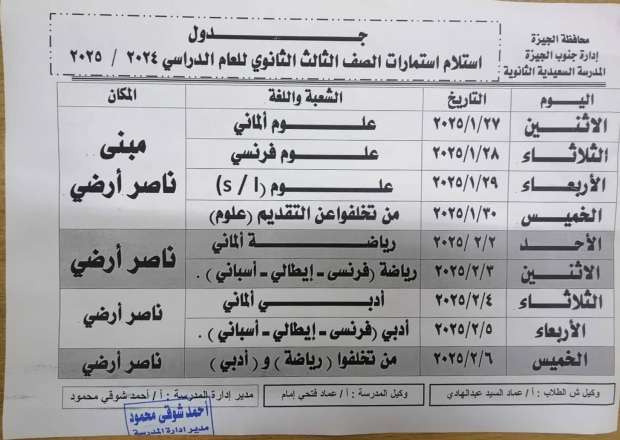 محافظة الجيزة
إدارة جنوب الجيزة
المدرسة السعيدية الثانوية
جـــــــدول
استلام استمارات الصف الثالث الثانوي للعام الدراسي ٢٠٢٤ / ٢٠٢٥
اليـوم التاريخ الشعبة واللغة المكان
الاثنـــين ٢٠٢٥/١/٢٧ علـــوم ألماني مبنى ناصر أرضي
الثلاثـاء ٢٠٢٥/١/٢٨ علـــوم فرنسي
الأربعـاء ٢٠٢٥/١/٢٩ علـــوم (s / I)
الخميـس ٢٠٢٥/١/٣٠ من تخلفوا عن التقديم (علوم)
الأحـــد ٢٠٢٥/٢/٢ رياضـــة ألماني ناصر أرضي
الاثنـــين ٢٠٢٥/٢/٣ رياضة (فرنسى - إيطالي - أسباني) .
الثلاثـاء ٢٠٢٥/٢/٤ أدبـــي ألماني ناصر أرضي
الأربعـاء ٢٠٢٥/٢/٥ أدبي (فرنسى - إيطالي - أسباني) .
الخميـس ٢٠٢٥/٢/٦ من تخلفوا (رياضة) و (أدبي) ناصر أرضي
وكيل ش الطلاب : أ / عماد السيد عبدالهادي
وكيل المدرسة : أ / عماد فتحي إمام
مدير إدارة المدرسة : أ / أحمد شوقى محمود
أحمد شوقى محمود
مدير ادارة المدرسة